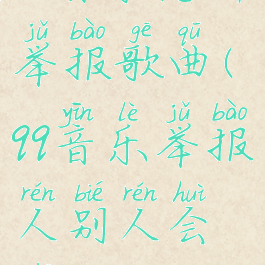 jǔ bào gē qū
举报歌曲(
yīn lè jǔ bào
99音乐举报
rén bié rén huì
人别人会